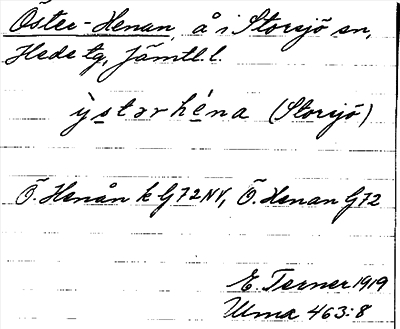 Öster-Henan, å i Storsjö sn,
Hede tg, Jämtl. l.
ỳstərhéna (Storsjö)
Ö. Henån k G72NV, Ö. Henan G72
E. Terner 1919
Ulma 463:8